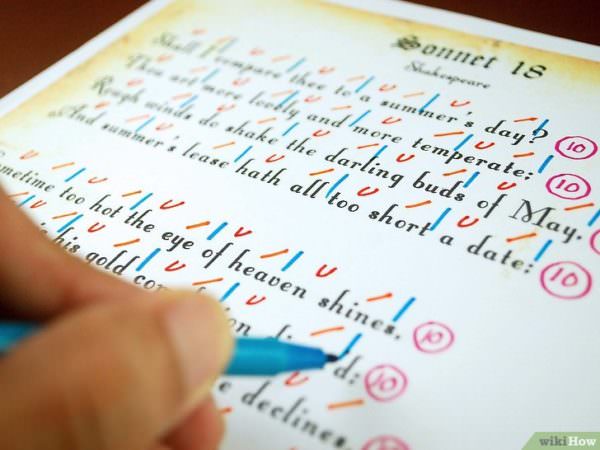 Sonnet 18
Shakespeare
Shall I compare thee to a summer's day? 10
Thou art more lovely and more temperate: 10
Rough winds do shake the darling buds of May.
And summer's lease hath all too short a date: 10
Sometime too hot the eye of heaven shines, 10
his gold 10
declines,
wikiHow